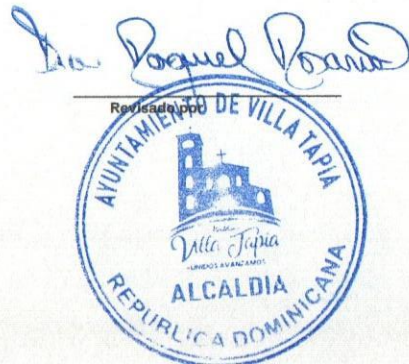 Dra Raquel Rosario
Revisado por
AYUNTAMIENTO DE VILLA TAPIA
Villa Tapia
UNIDOS AVANZAMOS
ALCALDIA
REPUBLICA DOMINICANA